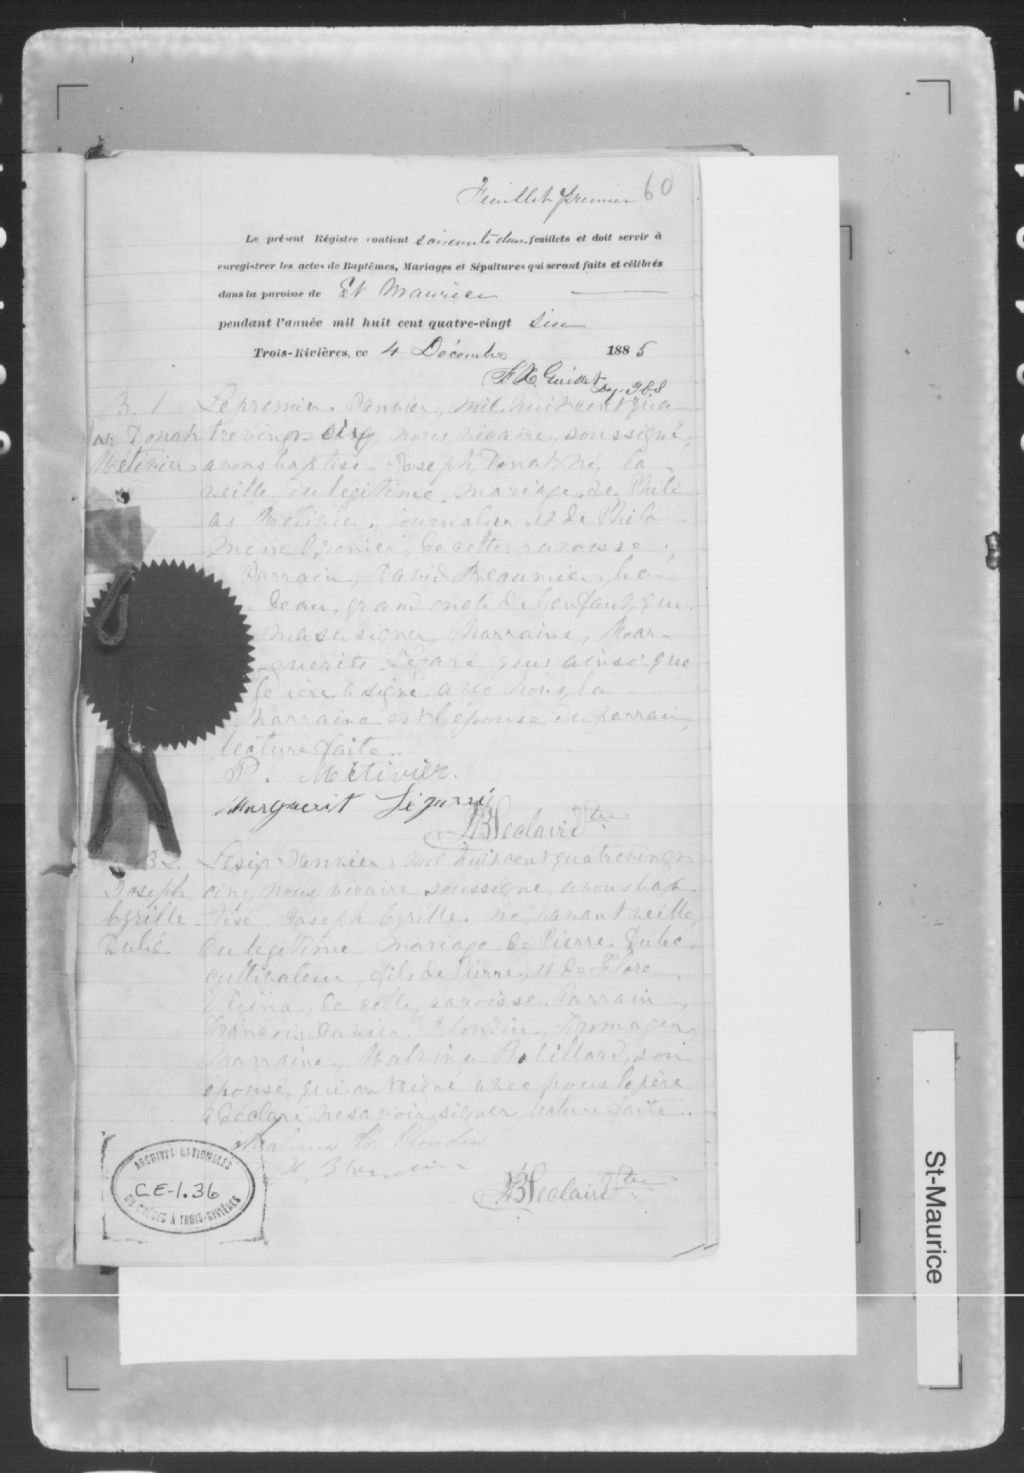 Feuillet premier 60
Le présent Régistre contient soixante deux feuillets et doit servir à
enregistrer les actes de Baptêmes, Mariages et Sépultures qui seront faits et célébrés
dans la paroisse de St Maurice
pendant l'année mil huit cent quatre-vingt six
Trois-Rivières, ce 4 Décembre 1885
B. 1
Jos. Donat
Métivier
Le premier Janvier, mil huit cent qua
tre vingt six, nous, vicaire, soussigné,
avons baptisé Joseph, Donat né, la
veille du légitime mariage de Phili
as Métivier, journalier et de Philo
mène de cette paroisse.
Parrain, David Beaumier, be-
deau, grand oncle de l'enfant, qui
n'a su signer, Marraine, Mar-
guerite Légaré qui ainsi que
le père a signé avec nous, la
Marraine est l'épouse du parrain,
lecture faite.
P. Métivier.
Marguerit Ligarré
Leclaire Ptre
B 2.
Joseph
Cyrille
Dubé
Le six Janvier, mil huit cent quatre vingt
cinq nous, vicaire, soussigné, avons bap
tisé Joseph Cyrille né, l'avant veille,
du légitime mariage de Pierre Dubé,
cultivateur, fils de Pierre, et de Flore
de cette paroisse. Parrain,
François Xavier Blondin, Fromager,
Marraine, Malvina Robillard, son
épouse, qui ont signé avec nous le père
a déclaré ne savoir signer, lecture faite.
Blondin
Leclaire Ptre
ARCHIVES NATIONALES
CE-1.36
DU QUÉBEC À TROIS-RIVIÈRES
St-Maurice